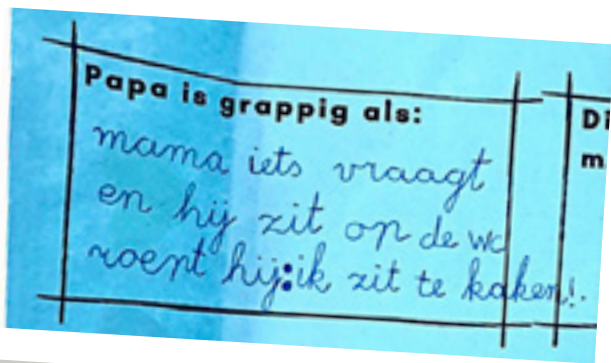 Papa is grappig als:
mama iets vraagt
en hij zit op de wc
roept hij:ik zit te kaken!.
Di
m